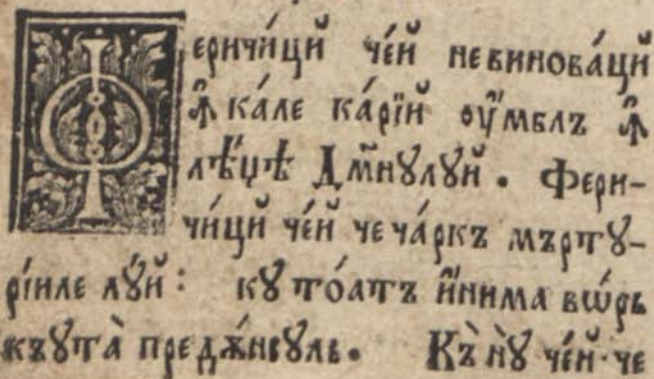 Феричи́цй че́й невинова́цй
ꙟ ка́ле ка́рїй оу҆́мблъ ꙟ
лѣ́џѣ Дм҃нꙋлꙋй. Фери-
чи́цй че́й че ча́ркъ мъртꙋ-
рі́иле лꙋ́й: кꙋ то́атъ и҆́нима вѡ́рь
къꙋта̀ пре дѫ́нсꙋль. Къ̀ нꙋ̀ че́й че